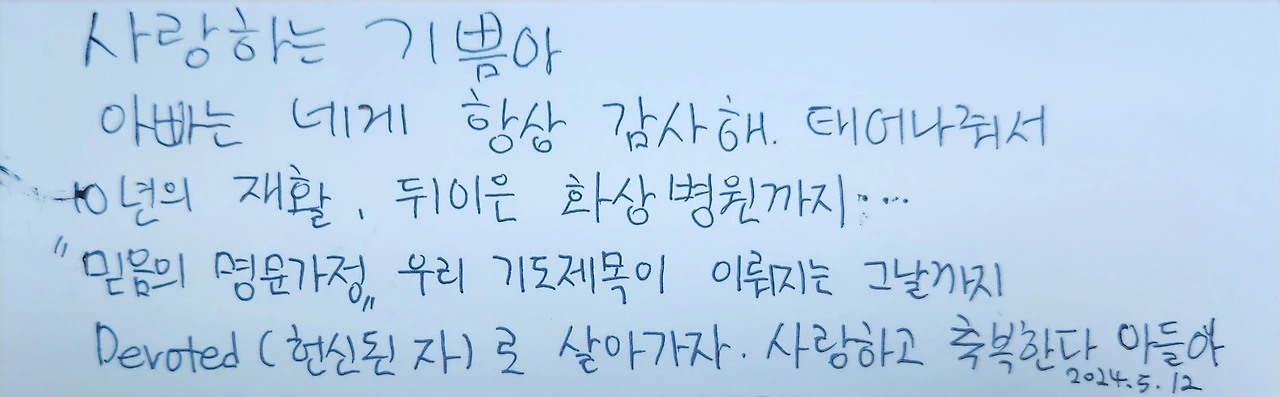 사랑하는 기쁨아
아빠는 네게 항상 감사해. 태어나줘서
10년의 재활, 뒤이은 화상병원까지...
"믿음의 명문가정" 우리 기도제목이 이뤄지는 그날까지
Devoted (헌신된 자)로 살아가자. 사랑하고 축복한다 아들아
2024.5.12